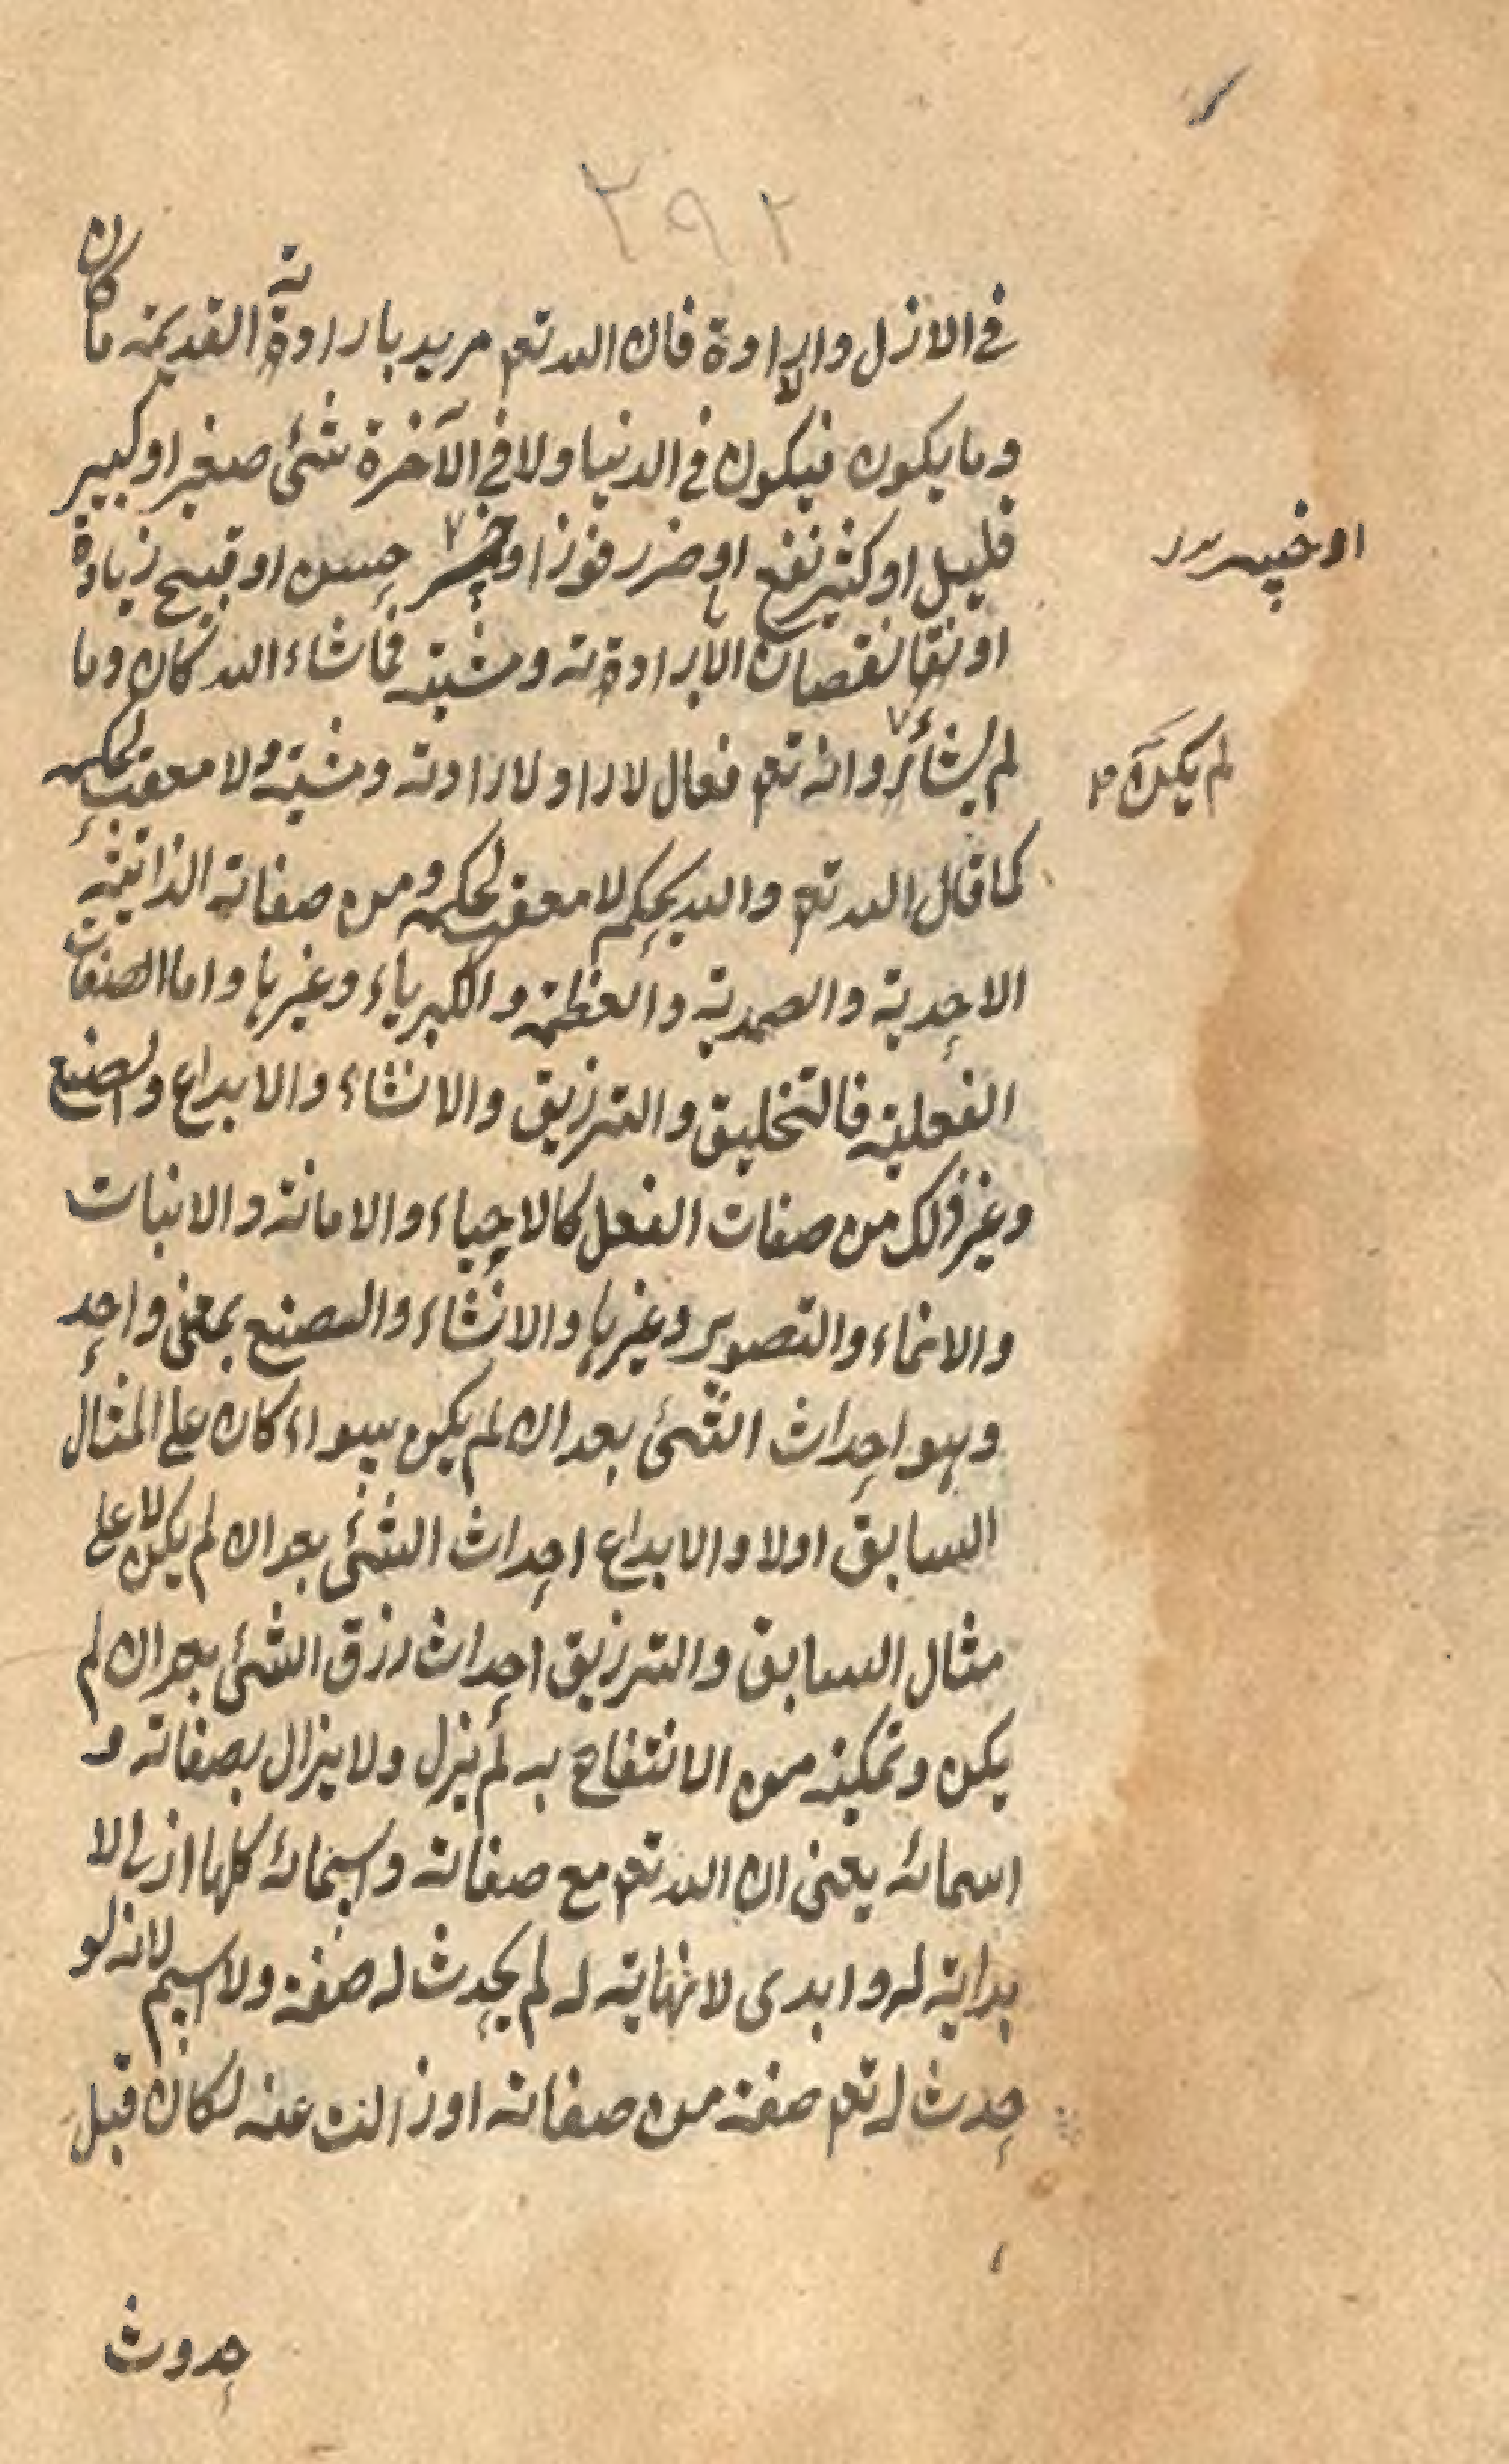 ٢٩٢
في الازل والارادة فان الله تعم مريد بارادته القديمة ما كان
وما يكون فيكون في الدنيا ولا في الآخرة شئ صغير او كبير
قليل او كثير نفع او ضرر فوز او خسر حسن او قبيح زيادة
او خسر
او نقصان الا بارادته ومشيته فما شاء الله كان وما
لم يشأ وانه تعم فعال لا راد لارادته ومشيته ولا معقب لحكمه
لم يكن
كما قال الله تعم والله يحكم لا معقب لحكمه ومن صفاته الذاتية
الاحدية والصمدية والعظمة والكبرياء وغيرها واما الصفات
الفعلية فالتخليق والترزيق والانشاء والابداع والصنع
وغير ذلك من صفات الفعل كالاحياء والاماتة والانبات
والانماء والتصوير وغيرها والانشاء والصنع بمعنى واحد
وهو احداث الشئ بعد ان لم يكن سواء كان على المثال
السابق اولا والابداع احداث الشئ بعد ان لم يكن لا على
مثال السابق والترزيق احداث رزق الشئ بعد ان لم
يكن وتمكينه من الانتفاع به لم يزل ولا يزال بصفاته و
اسمائه يعنى ان الله تعم مع صفاته واسمائه كلها ازلى لا
بداية له وابدى لا نهاية له لم يحدث له صفة ولا اسم لانه لو
حدث له تعم صفة من صفاته او زالت عنه لكان قبل
حدوث